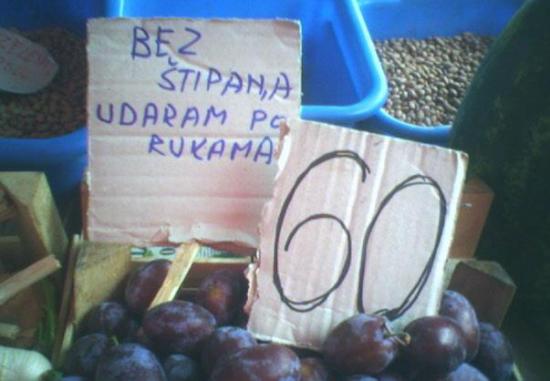 BEZ
ŠTIPANJA
UDARAM PO
RUKAMA
60